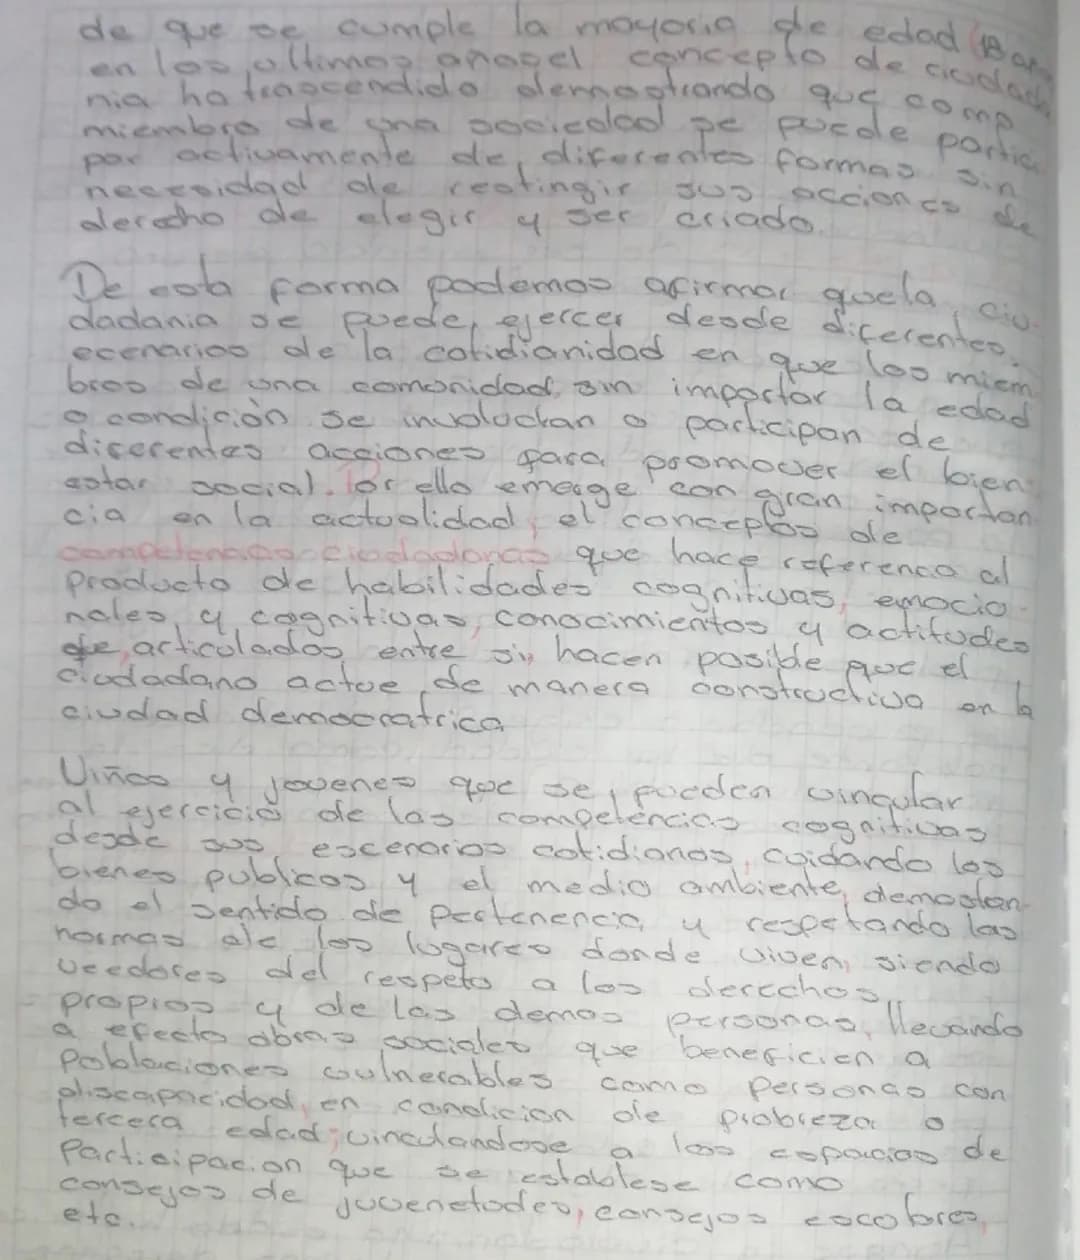 de que se cumple la mayoria de edad (18 añ
en los ultimos añosel concepto de ciudada
nia ha trascendido demostrando que como
miembro de una sociedad se puede partic
par activamente de diferentes formas sin
necesidad de restingir sus acciones de
derecho de elegir y ser criado.
De esta forma podemos afirmar quela ciu-
dadania se puede, ejercer desde diferentes
ecenarios de la cotidianidad en que los miem
bros de una comonidad, sin importar la edad
o condición se involuckan o participan de
diferentes acciones para promover el bien
estar social. Por ello emerge con gran importan
cia en la actualidad, el conceptos de
competencias ciudadanas que hace referenca al
producto de habilidades cognitivas, emocio-
nales y cognitivas, conocimientos y actitudes
que, articulados entre si, hacen posible que el
ciudadano actue de manera constructiva en la
ciudad democratrica
Niños y jovenes que se pueden vincular
al ejercicio de las competencias cognitivas
desde sus escenarios cotidianos, cuidando los
bienes publicos y el medio ambiente, demostan-
do el sentido de pertenencia y respetando las
normas de los lugares donde viven, siendo
veedores del respeto a los derechos,
propios y de las demas personas, llevando
a efecto obras sociales que beneficien a
Poblaciones vulnerables como personas con
discapacidad, en condicion de probreza o
tercera edad; vinculandose a los espacios de
Participacion que se establese como
consejos de juvenetodes, consejos escolores,
etc.